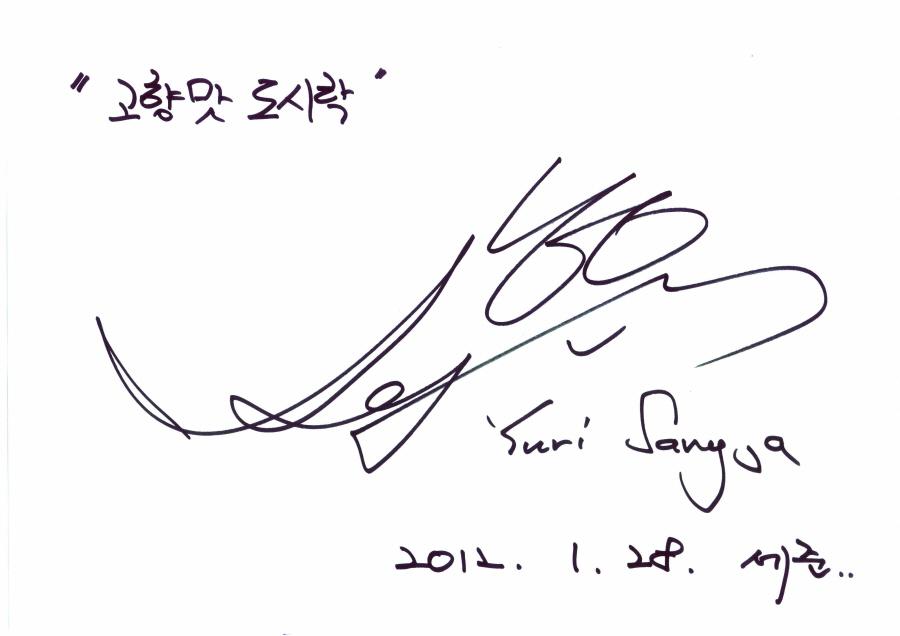 "고향맛 도시락"
Yuri Sangja
2012. 1. 28. 세준..